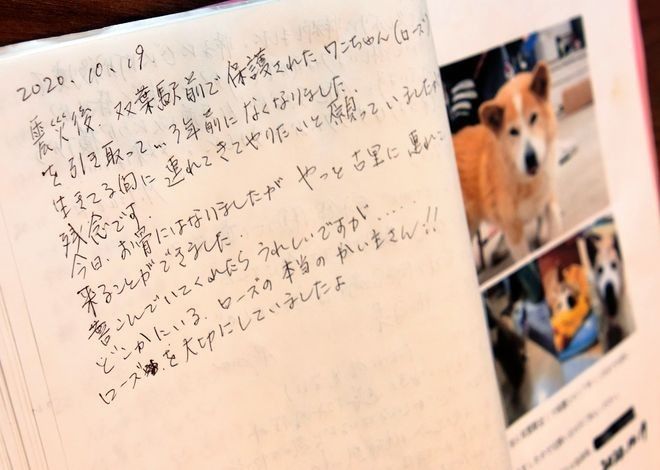 2020.10.19.
震災後、双葉駅前で保護されたワンちゃん(ローズ)
を引き取って…3年前になくなりました
生きてる内に連れてきてやりたいと願っていましたが
残念です.
今日、お骨にはなりましたが やっと古里に連れて
来ることができました.
喜こんでいてくれたらうれしいですが……
どこかにいる、ローズの本当のかい主さん!!
ローズを大切にしていましたよ